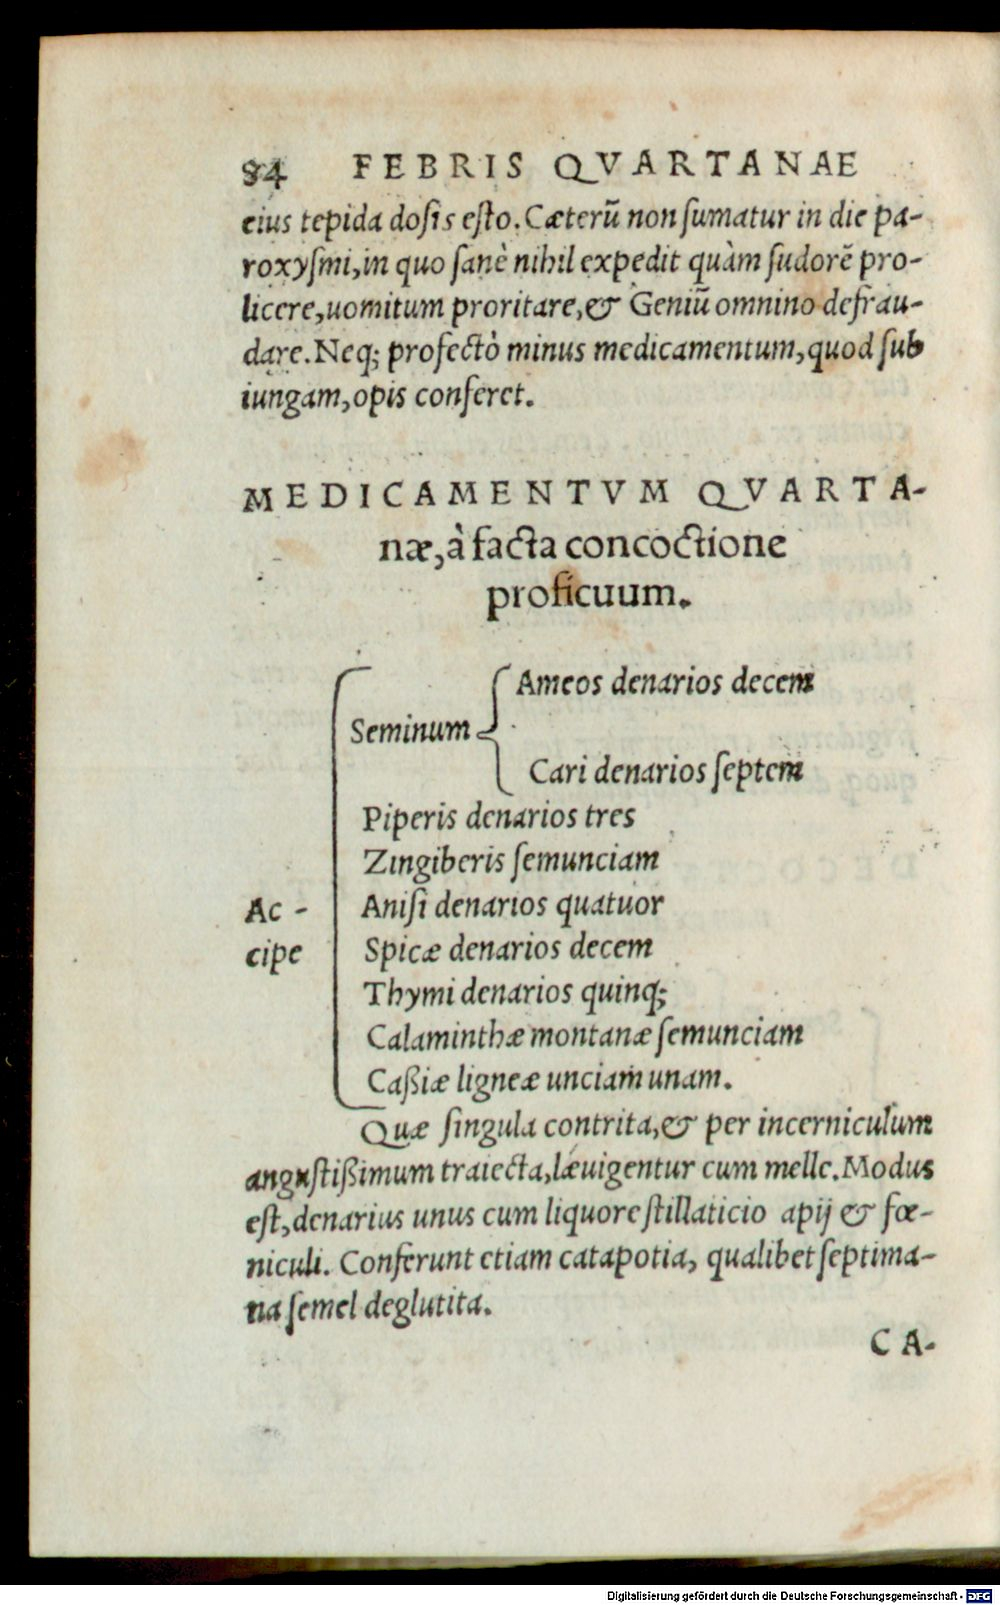 84 FEBRIS QVARTANAE
eius tepida dosis esto. Cæterũ non sumatur in die pa-
roxysmi, in quo sanè nihil expedit quàm sudorẽ pro-
licere, uomitum proritare, & Geniũ omnino defrau-
dare. Neq; profectò minus medicamentum, quod sub
iungam, opis conferet.
MEDICAMENTVM QVARTA-
næ, à facta concoctione
proficuum.
Ameos denarios decem
Seminum
Cari denarios septem
Piperis denarios tres
Zingiberis semunciam
Ac - Anisi denarios quatuor
cipe Spicæ denarios decem
Thymi denarios quinq;
Calaminthæ montanæ semunciam
Caßiæ ligneæ unciam unam.
Quæ singula contrita, & per incerniculum
angustißimum traiecta, læuigentur cum melle. Modus
est, denarius unus cum liquore stillaticio apij & fœ-
niculi. Conferunt etiam catapotia, qualibet septima-
na semel deglutita.
CA-
Digitalisierung gefördert durch die Deutsche Forschungsgemeinschaft - DFG